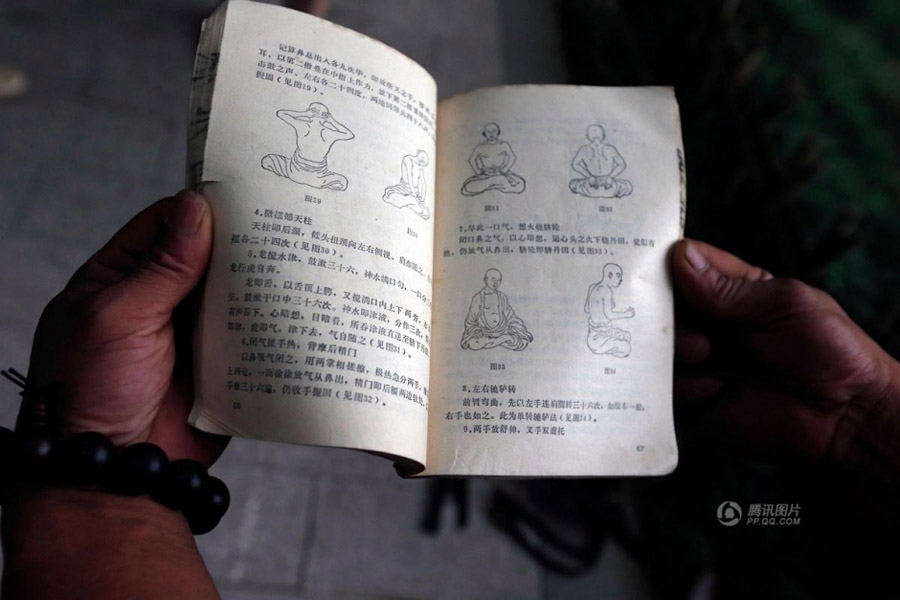 记算鼻息出入各九次毕，即放所叉之手，
耳，以第二指叠在中指上作力，放下第二指
击鼓之声，左右各二十四度，两地同弹共四十八声
握固（见图29）。
图29
图30
4.微摆撼天柱
天柱即后颈，低头扭颈向左右侧视，肩亦随之
摆各二十四次（见图30）。
5.龙搅水津，鼓漱三十六，神水满口匀，一口分
龙行虎自奔。
龙即舌，以舌顶上腭，又搅满口内上下两旁，
生，鼓漱于口中三十六次。神水即津液，分作三次，
有声吞下。心暗想，目暗看，所吞津液直送至脐下丹田
即液，虎即气。津下去，气自随之（见图31）。
6.闭气搓手热，背摩后精门
以鼻吸气闭之，用两掌相搓擦，极热急分两手
上两边，一面徐徐放气从鼻出，精门即后腰两边软处
手摩三十六遍，仍收手握固（见图32）。
图31
图32
7.尽此一口气，想火烧脐轮
闭口鼻之气，以心暗想，运心头之火下烧丹田，觉似有
热，仍放气从鼻出，脐轮即脐丹田（见图33）。
图33
图34
8.左右辘轳转
前臂弯曲，先以左手连肩圆转三十六次，如绞车一般，
右手也如之。此为单转辘轳法（见图34）。
9.两手放舒伸，叉手双虚托
67
腾讯图片
PP.QQ.COM